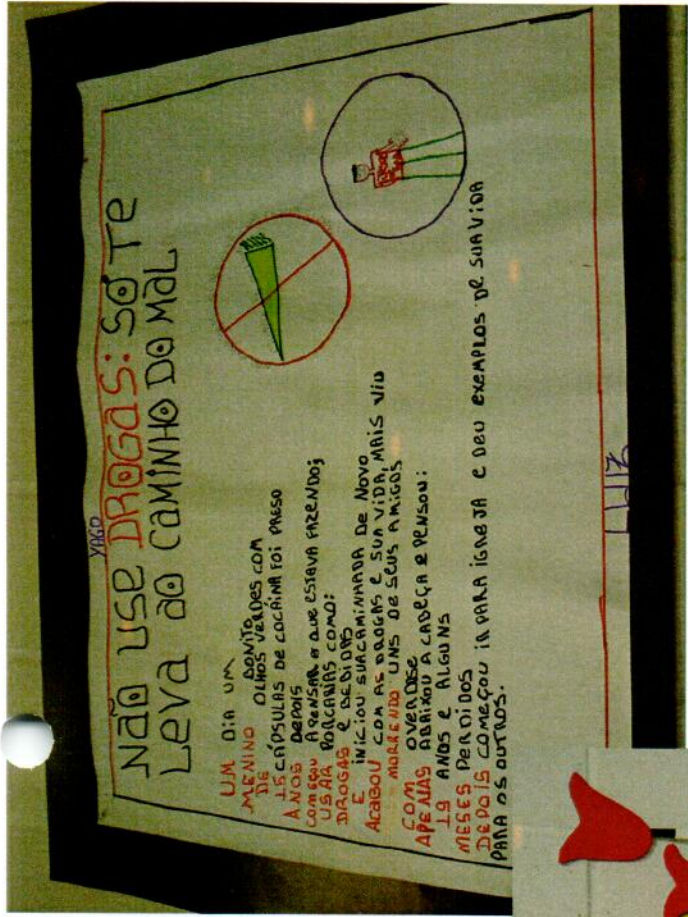 YAGO
NÃO USE DROGAS: SÓ TE
LEVA AO CAMINHO DO MAL
UM DIA UM
MENINO BONITO
DE OLHOS VERDES COM
15 CÁPSULAS DE COCAÍNA FOI PRESO
ANOS DEPOIS
COMEÇOU A PENSAR O QUE ESTAVA FAZENDO;
USAR PORCARIAS COMO:
DROGAS E BEBIDAS
E INICIOU SUA CAMINHADA DE NOVO
ACABOU COM AS DROGAS E SUA VIDA, MAIS VIU
MORRENDO UNS DE SEUS AMIGOS
COM OVERDISE
APENAS ABAIXOU A CABEÇA E PENSOU:
19 ANOS E ALGUNS
MESES PERDIDOS
DEPOIS COMEÇOU IR PARA IGREJA E DEU EXEMPLOS DE SUA VIDA
PARA OS OUTROS.
LUIZ